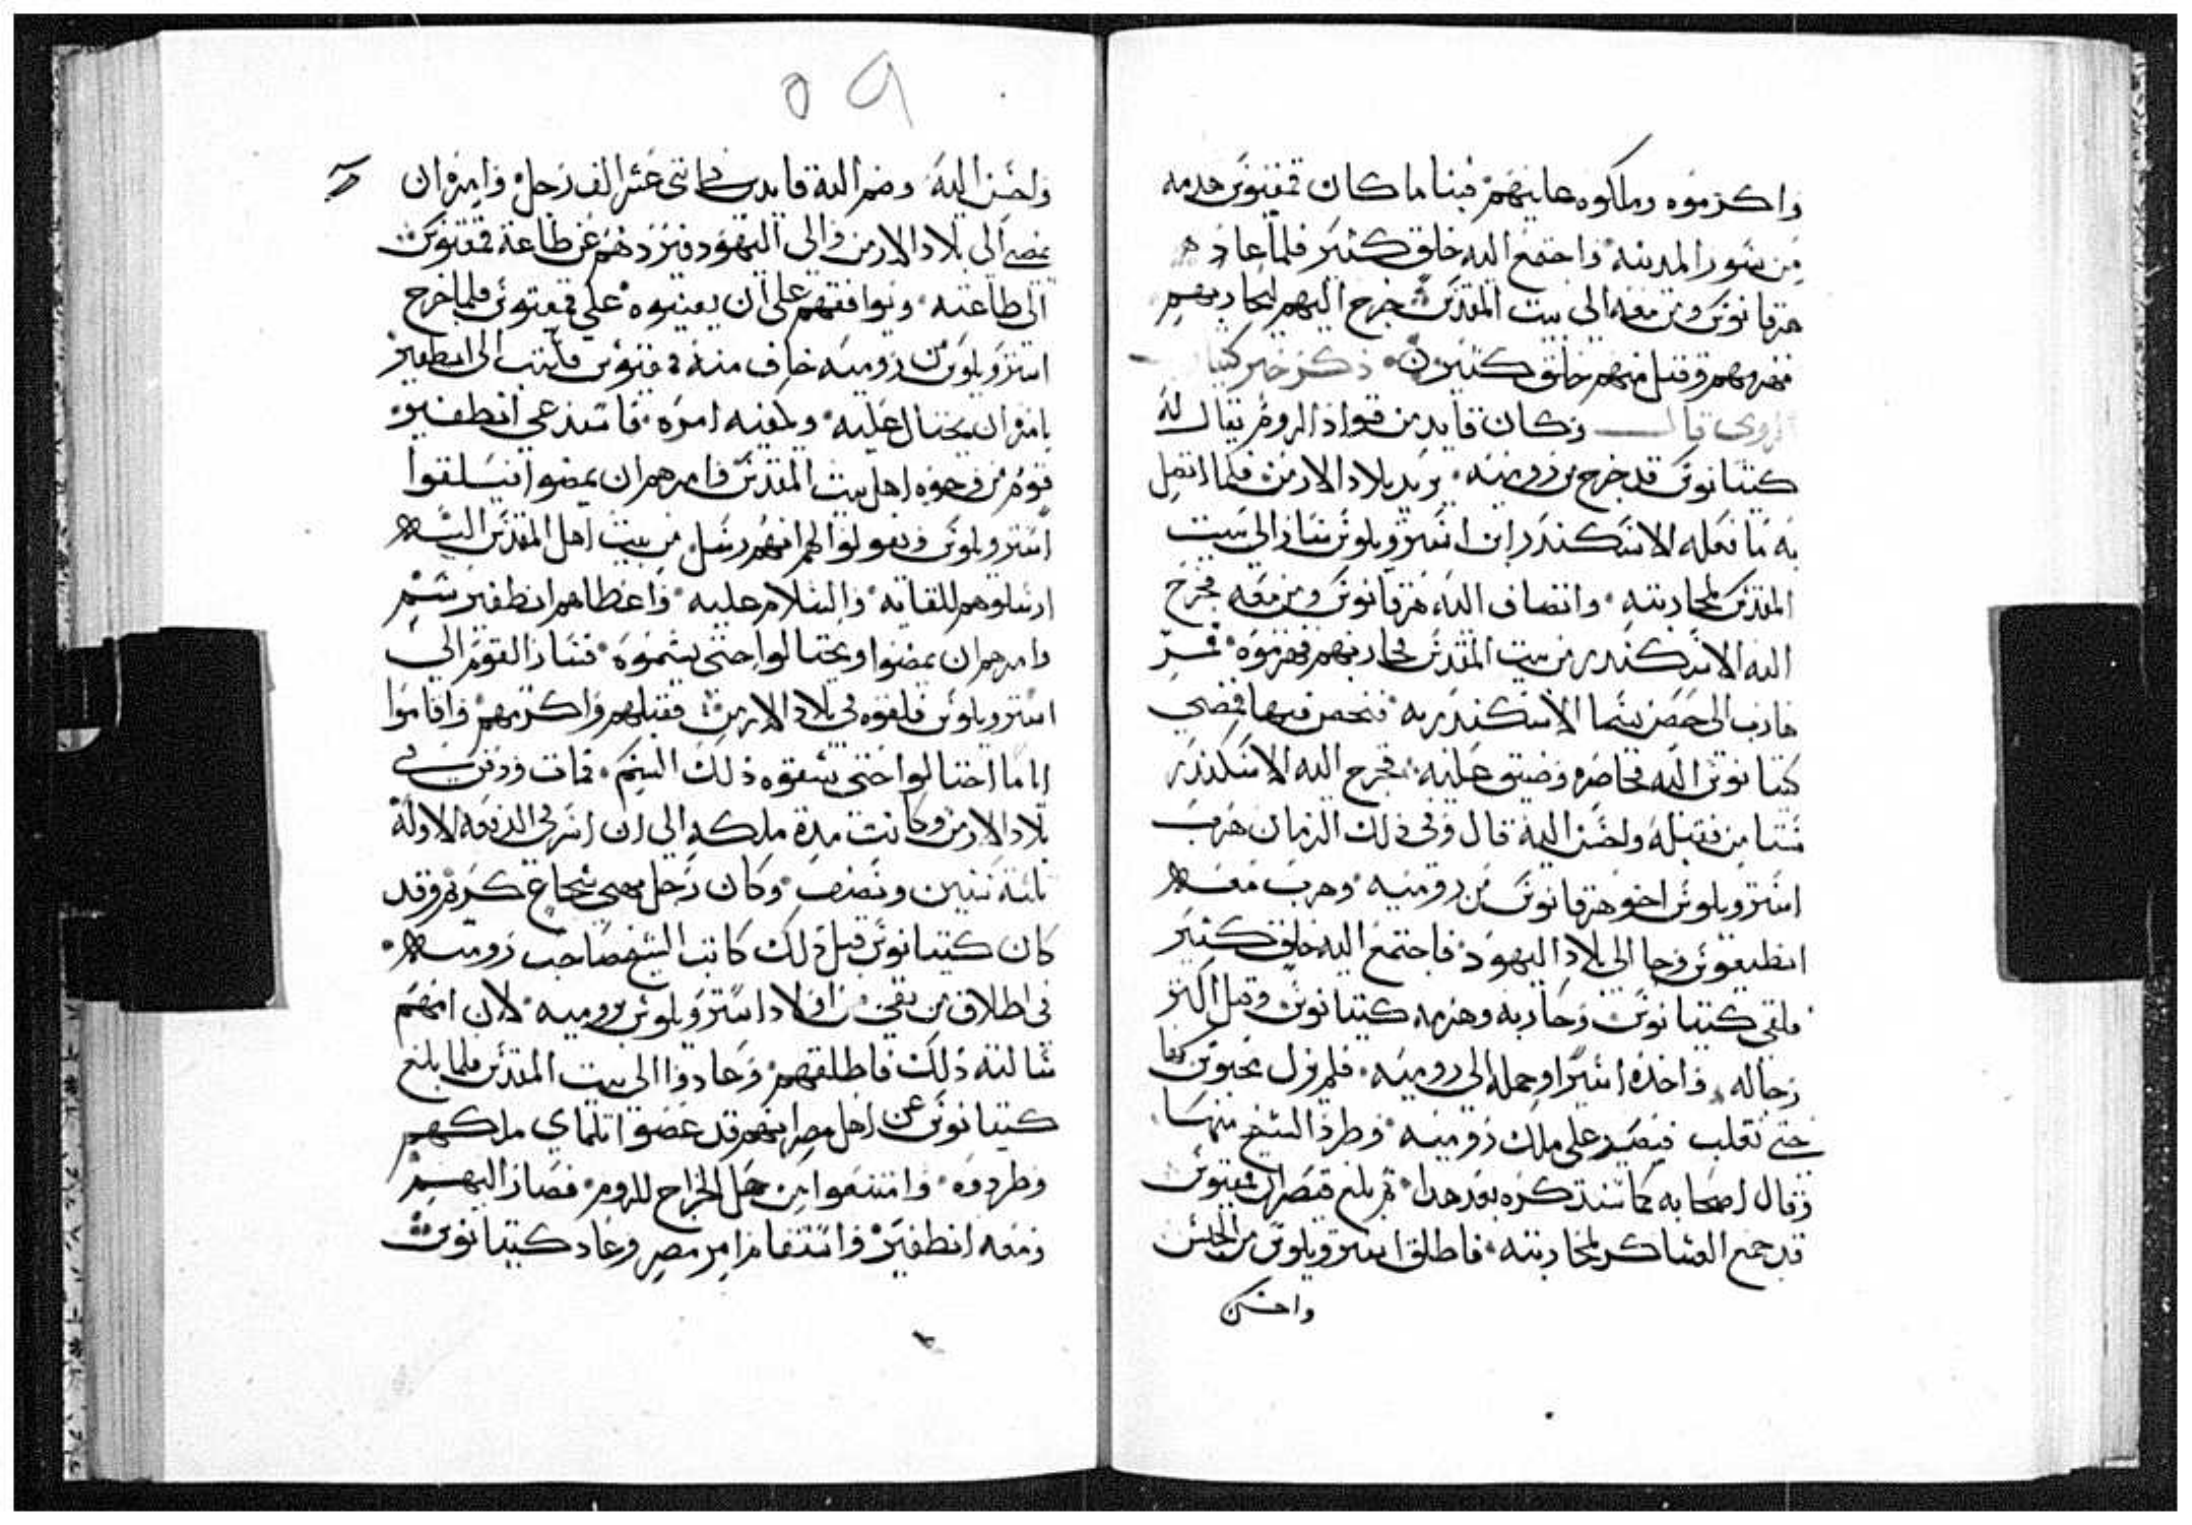 واكرموه وملكوه عليهم فبنا ما كان قمفيوس هدمه
من سور المدينه واجتمع اليه خلق كثير فلما عاد
هرقانوس ومن معه الى بيت المقدس خرج اليهم ليحاربهم
فهزمهم وقتل منهم خلق كثير ذكر خبر كتيانوس
الرومي قال وكان قايد من قواد الروم يقال له
كتيانوس قد خرج من روميه يريد بلاد الارمن فلما اتصل
به ما فعله الاسكندر ابن استروبلوس سار الى بيت
المقدس لمحاربته وانضاف اليه هرقانوس ومن معه فخرج
اليه الاسكندر من بيت المقدس فحاربهم فهزموه فمر
هارب الى حصن يسما الاسكندريه فتحصن فيها فمضى
كتيانوس اليه فحاصره وضيق عليه فخرج اليه الاسكندر
مستامن فقبله واحسن اليه قال وفي ذلك الزمان هرب
استروبلوس اخو هرقانوس من روميه وهرب معه
انطيغنوس وجا الى بلاد اليهود فاجتمع اليه خلق كثير
فلقى كتيانوس وحاربه وهزمه كتيانوس وقتل اكثر
رجاله واخذه اسيرا وحمله الى روميه فلم يزل محبوس
حتى تغلب قيصر على ملك روميه وطرد الشيخ منها
وقال اصحابه كما سنذكره بعد هذا ثم بلغ قيصر ان قمفيوس
قد جمع العساكر لمحاربته فاطلق استروبلوس من الحبس
واحسن
٥٩
واحسن اليه وضم اليه قايدين في اثنى عشر الف رجل وامره ان
يمضي الى بلاد الارمن والى اليهود فيردهم عن طاعة قمفيوس
الى طاعته ويوافقهم على ان يعينوه على قمفيوس فلما خرج
استروبلوس من روميه خاف منه قمفيوس فكتب الى انطفير
يامره ان يحتال عليه ويكفيه امره فاستدعى انطفير
قوم من وجوه اهل بيت المقدس وامرهم ان يمضوا فيلقوا
استروبلوس ويقولوا لهم انهم رسل من بيت اهل المقدس اليه
ارسلوهم للقايه والسلام عليه واعطاهم انطفير سم
وامرهم ان يمضوا ويحتالوا حتى يسموه فسار القوم الى
استروبلوس فلقوه في بلاد الارمن فقبلهم واكرمهم واقاموا
اياما احتالوا حتى سقوه ذلك السم فمات ودفن في
بلاد الارمن وكانت مدة ملكه الى ان اسر في الدفعه الاوله
ثلثة سنين ونصف وكان رجل بهى شجاع كريم وقد
كان كتيانوس قبل ذلك كاتب الشيخ صاحب روميه
في اطلاق من بقي من اولاد استروبلوس بروميه لان امهم
سالته ذلك فاطلقهم وعادوا الى بيت المقدس فلما بلغ
كتيانوس عن اهل مصر انهم قد عصوا تلماي ملكهم
وطردوه وامتنعوا من حمل الخراج للروم فصار اليهم
ومعه انطفير واستقام امر مصر وعاد كتيانوس